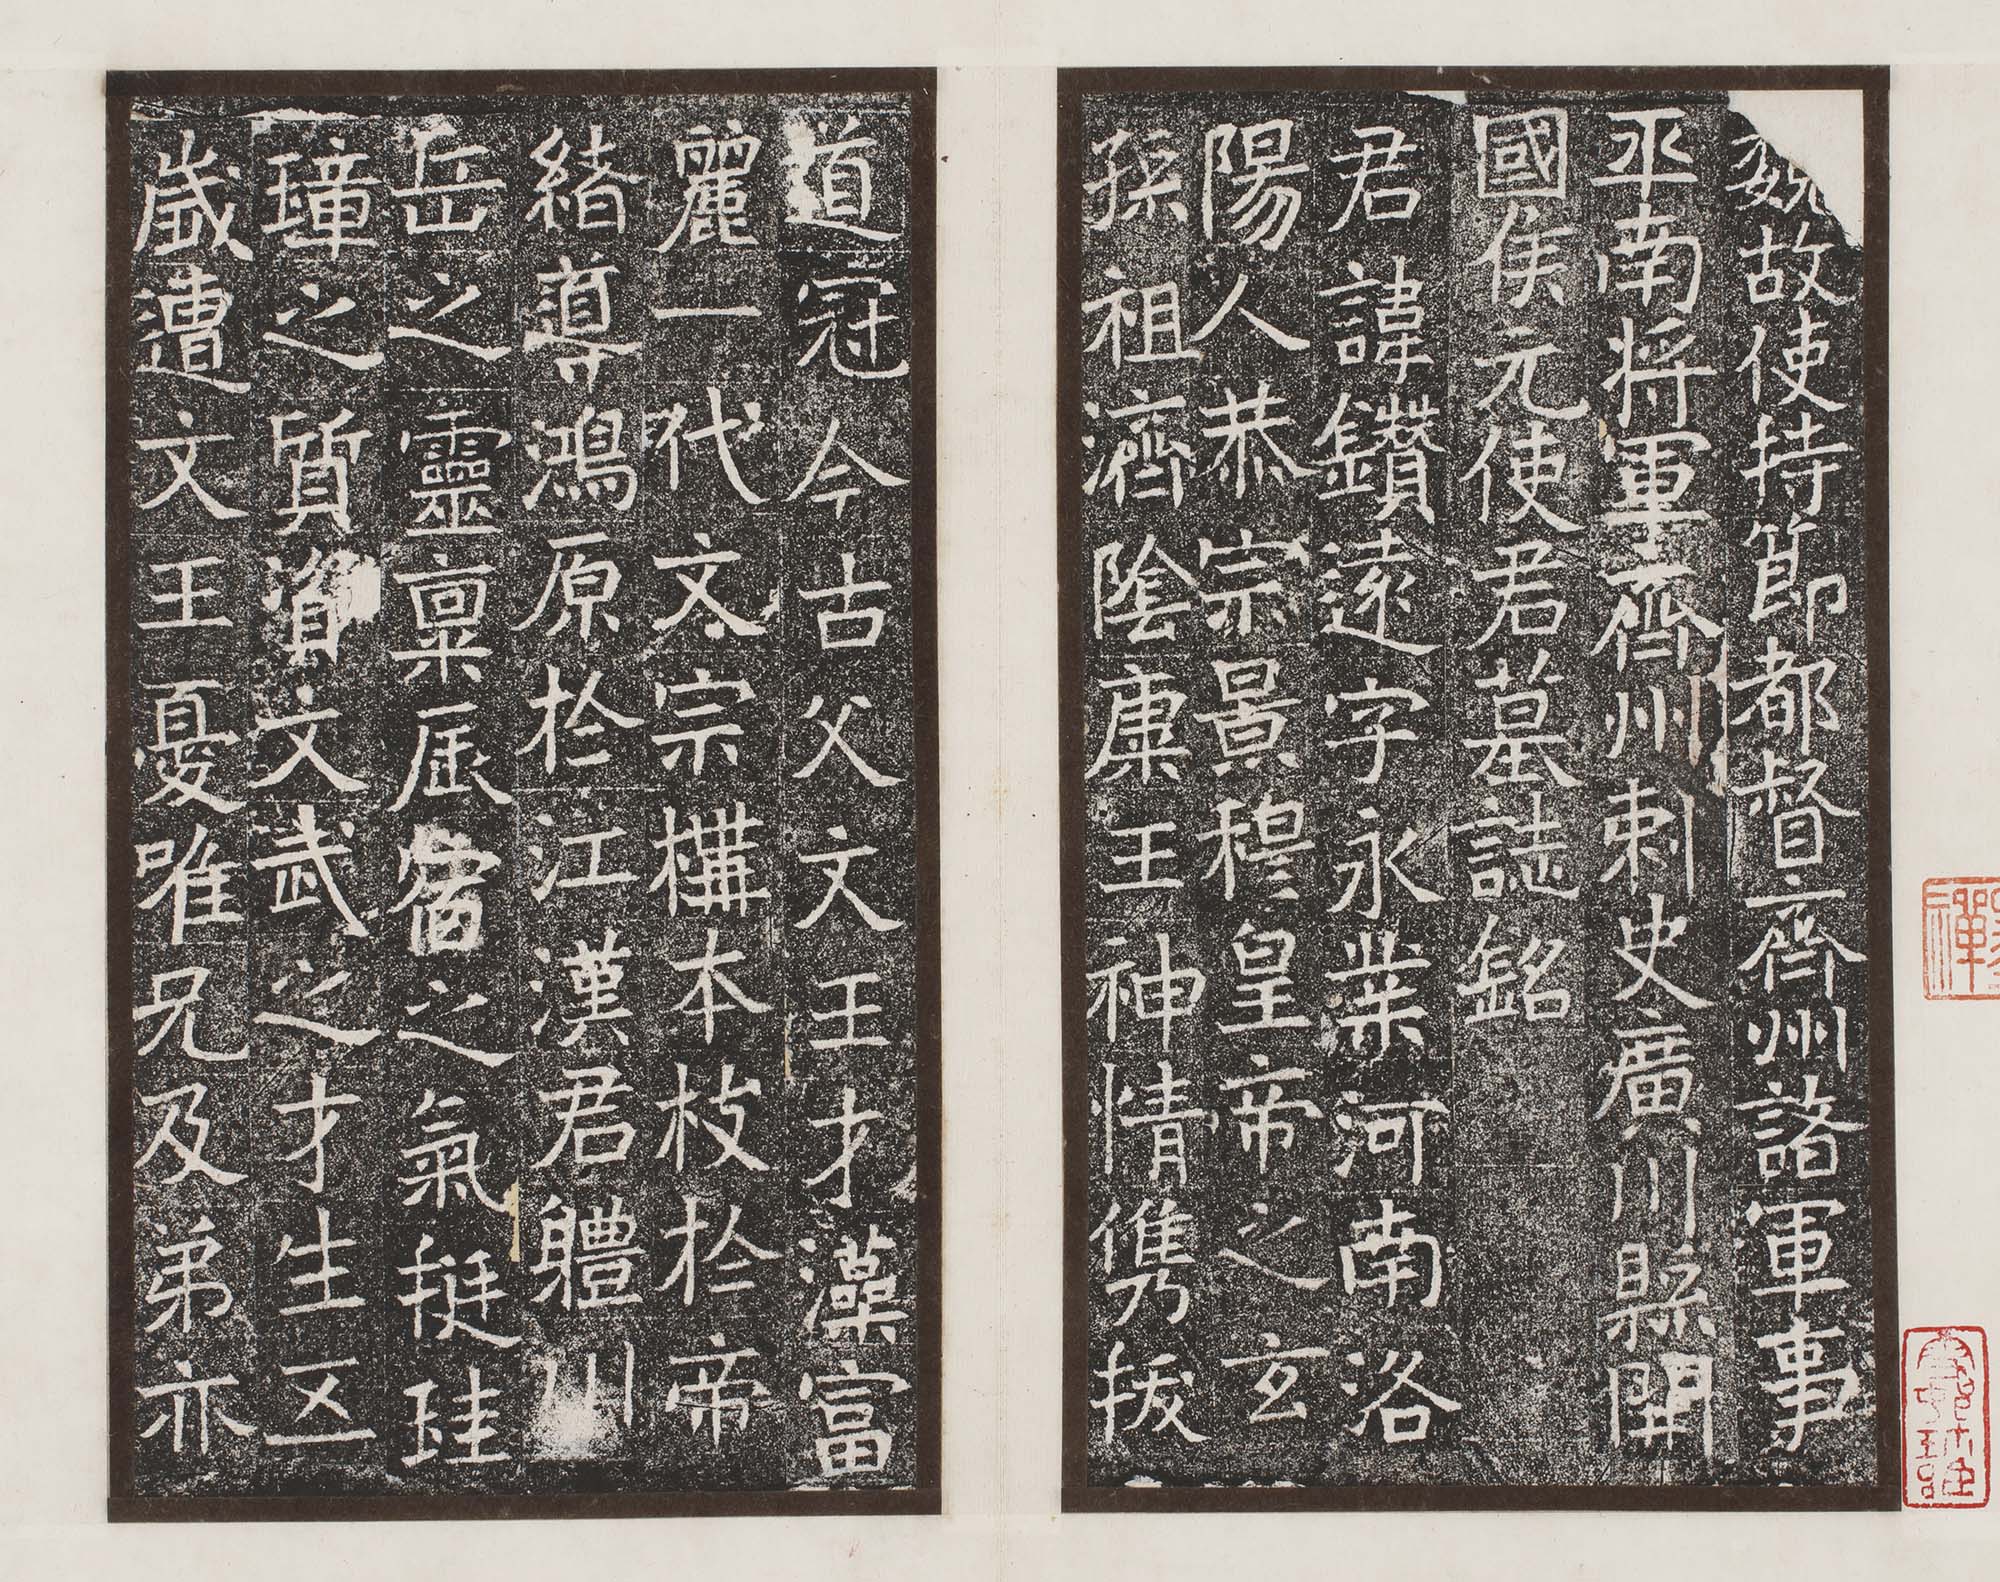 魏故使持節都督齊州諸軍事
平南将軍齊州刺史廣川縣開
國侯元使君墓誌銘
君諱鑽遠字永業河南洛
陽人恭宗景穆皇帝之玄
孫祖濟陰康王神情儁拔
道冠今古父文王才藻富
麗一代文宗構本枝於帝
緒導鴻原於江漢君體川
岳之靈稟辰宿之氣挺珪
璋之質資文武之才生五
歲遭文王憂唯兄及弟亦